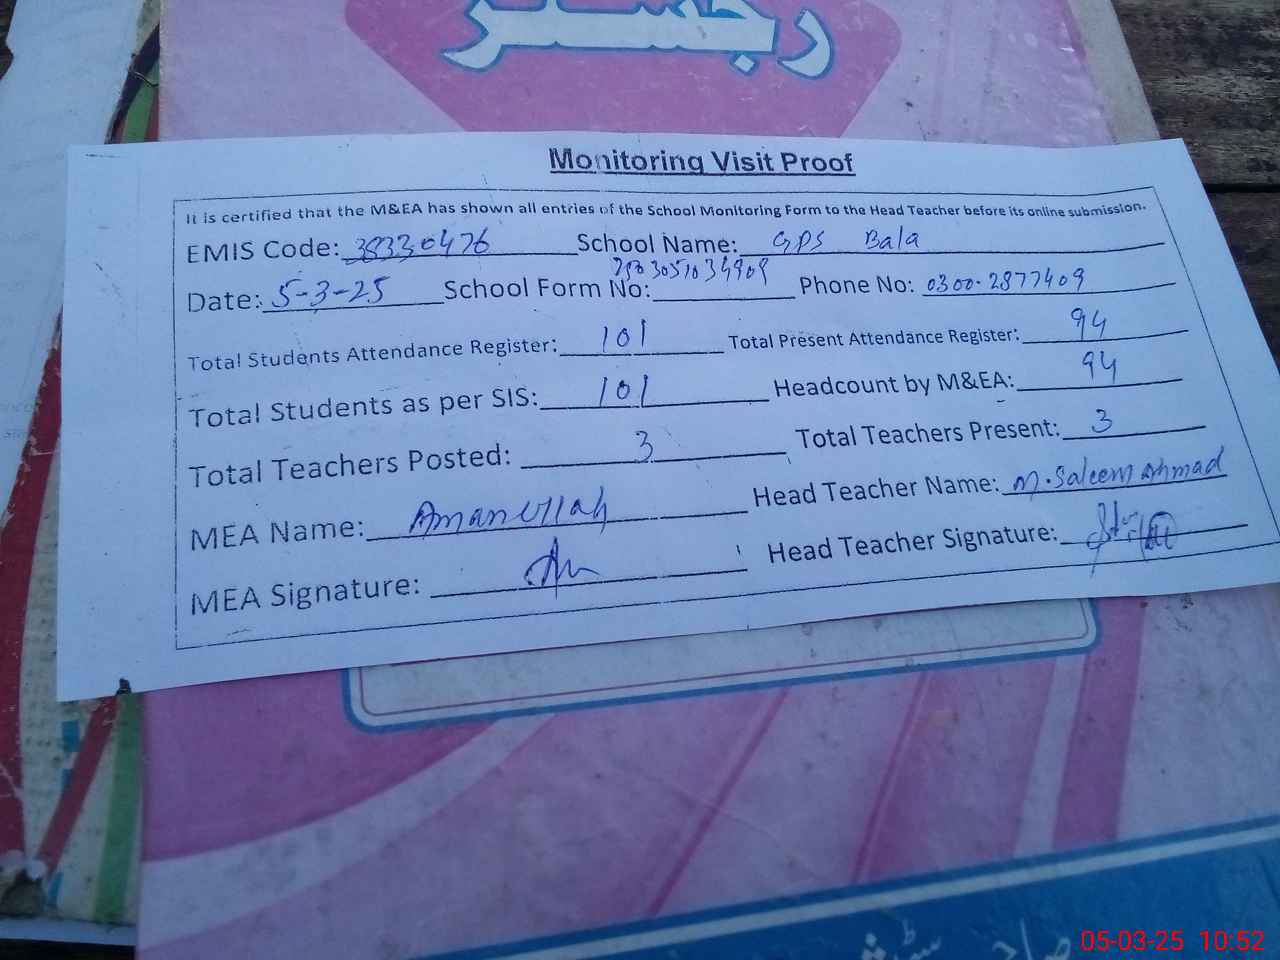 رجسٹر
Monitoring Visit Proof
It is certified that the M&EA has shown all entries of the School Monitoring Form to the Head Teacher before its online submission.
EMIS Code: 38330476 School Name: GPS Bala
Date: 5-3-25 School Form No: Phone No: 0300-2877409
Total Students Attendance Register: 101 Total Present Attendance Register: 94
Total Students as per SIS: 101 Headcount by M&EA: 94
Total Teachers Posted: 3 Total Teachers Present: 3
MEA Name: Amanullah Head Teacher Name: M. Saleem Ahmad
MEA Signature: Head Teacher Signature:
05-03-25 10:52